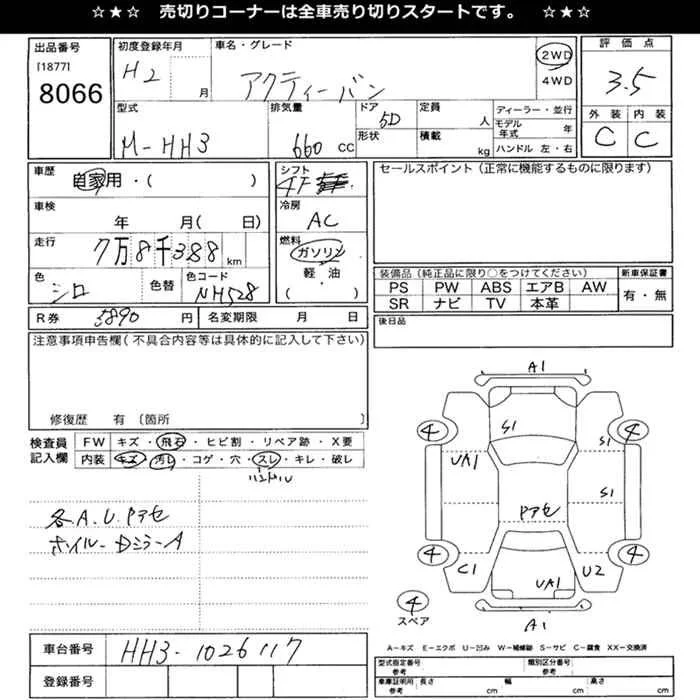 ☆★☆ 売切りコーナーは全車売り切りスタートです。 ☆★☆
出品番号 [1877] 8066
初度登録年月 H2 月
車名・グレード アクティーバン
2WD 4WD
評価点 3.5
外装 C 内装 C
型式 M-HH3
排気量 660 CC
ドア 5D 形状
定員 人
積載 kg
ディーラー・並行
モデル年式 年
ハンドル 左・右
車歴 自家用・( )
シフト 4F
車検 年 月( 日)
冷房 AC
走行 7万8千388 km
燃料 ガソリン 軽・油 ( )
色 シロ 色替 色コード NH528
R券 5890 円 名変期限 月 日
セールスポイント(正常に機能するものに限ります)
装備品(純正品に限り○をつけてください) 新車保証書
PS PW ABS エアB AW 有・無
SR ナビ TV 本革
後日品
注意事項申告欄(不具合内容等は具体的に記入して下さい)
修復歴 有 〔箇所 〕
検査員記入欄
FW キズ・飛石・ヒビ割・リペア跡・X要
内装 キズ・汚レ・コゲ・穴・スレ・キレ・破レ
ハンドル
各A.U.Pアセ
ホイル-DミラーA
A1
4 S1 S1 4
UA1
S1
Pアセ
4 C1 UA1 U2 4
4 スペア
A1
A-キズ E-エクボ U-凹み W-補修跡 S-サビ C-腐食 XX-交換済
車台番号 HH3-1026117
登録番号
型式指定番号 参考 類別区分番号 参考
車庫証明用 参考 長さ cm 幅 cm 高さ cm